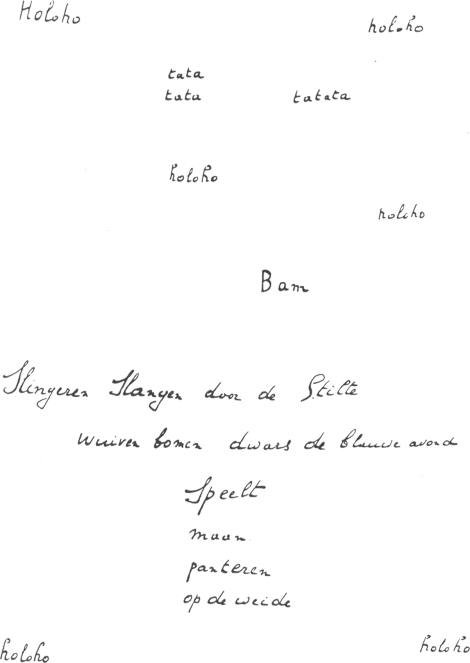 Holoho
holoho
tata
tata tatata
holoho
holoho
Bam
Slingeren Slangen door de Stilte
Wuiven bomen dwars de blauwe avond
Speelt
maan
panteren
op de weide
holoho holoho